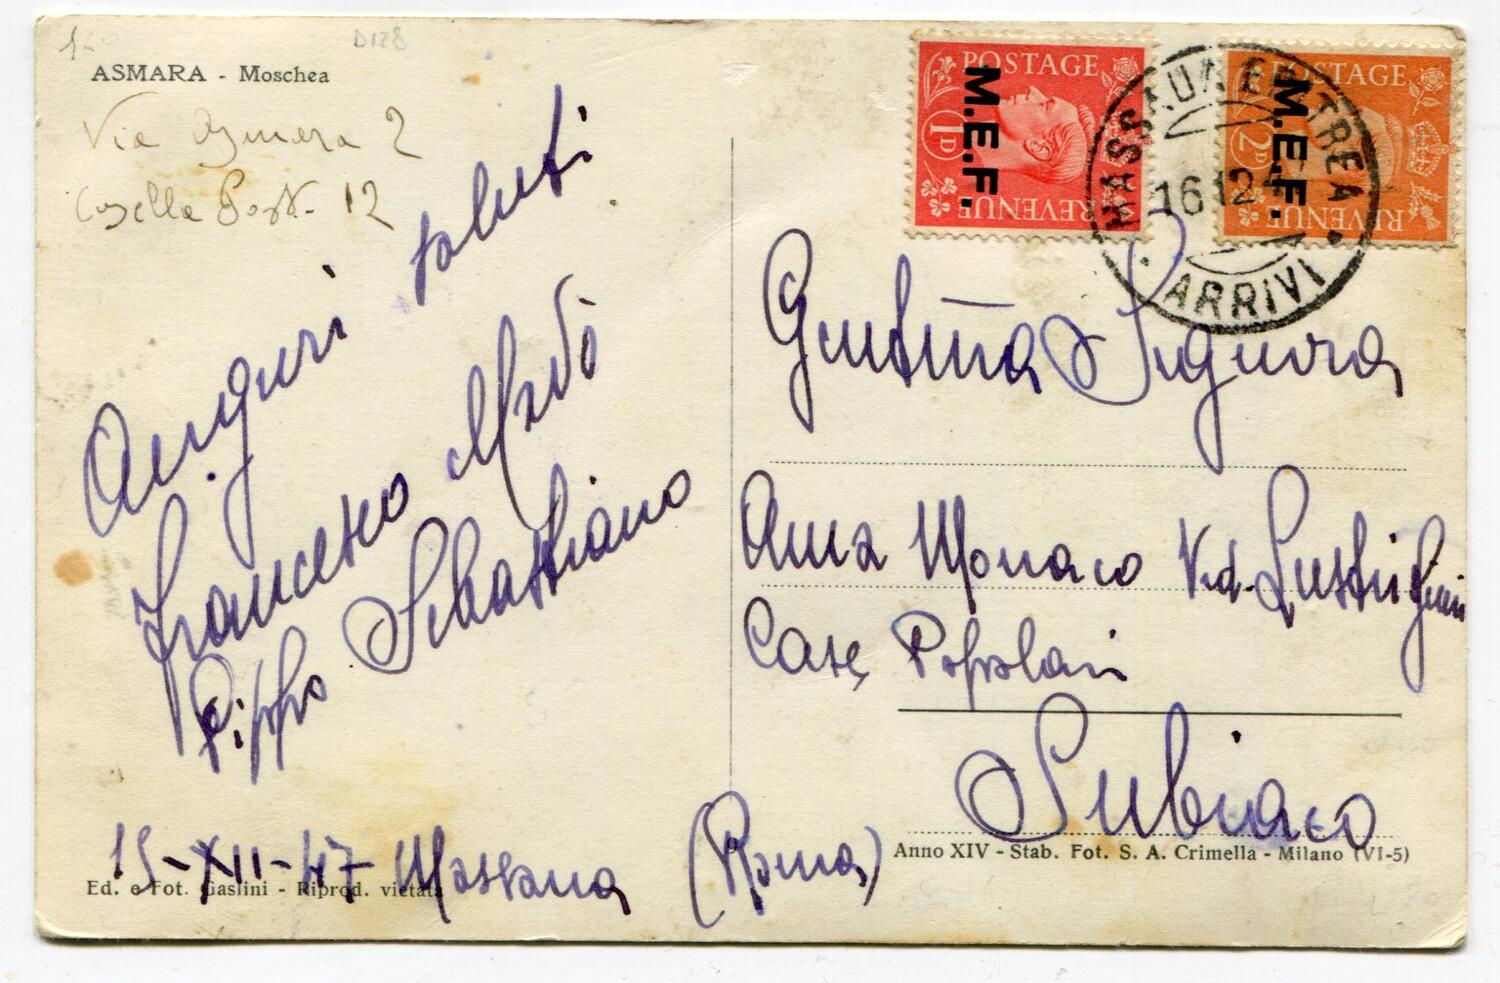 D128
ASMARA - Moschea
Via Asmara 2
Casella Post. 12
Auguri saluti
Francesco
Pippo Sebastiano
15-XII-47 Massaua
Ed. e Fot. Gaslini - Riprod. vietata
POSTAGE
1D
REVENUE
M.E.F.
POSTAGE
2D
REVENUE
M.E.F.
MASSAUA ERITREA
16 12 4
ARRIVI
Gentma Signora
Anna Monaco Ved.
Case Popolari
Subiaco
(Roma)
Anno XIV - Stab. Fot. S. A. Crimella - Milano (VI-5)